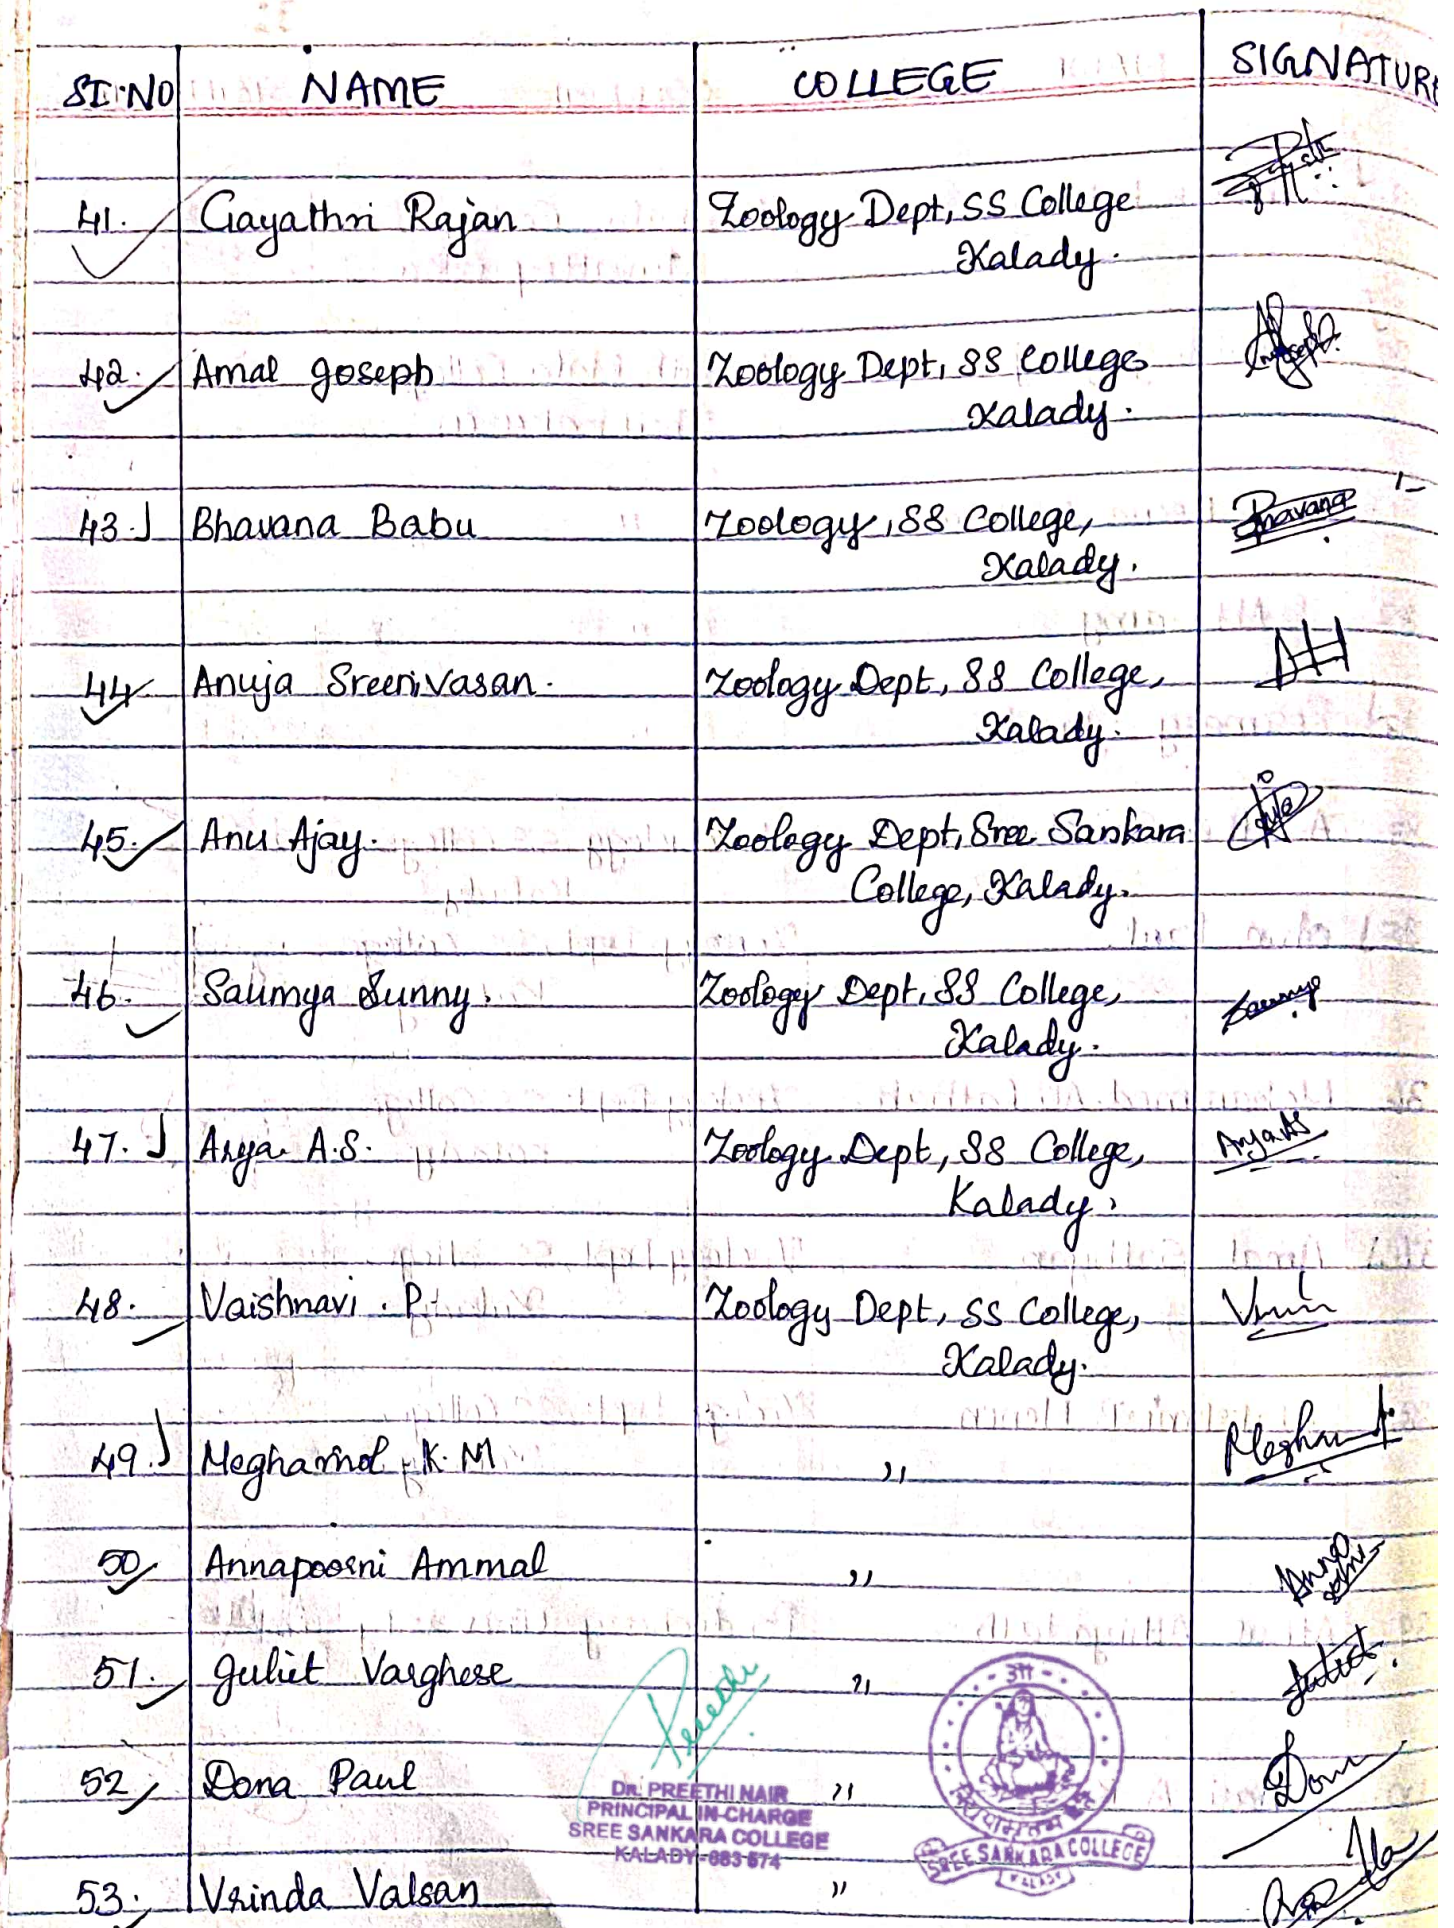 SI·NO NAME COLLEGE SIGNATURE
41. Gayathri Rajan Zoology Dept, SS College
Kalady.
42. Amal Joseph Zoology Dept, SS College
Kalady.
43. Bhavana Babu Zoology, SS College,
Kalady.
Bhavana
44. Anuja Sreenivasan. Zoology Dept, SS College,
Kalady.
45. Anu Ajay. Zoology Dept, Sree Sankara
College, Kalady.
46. Saumya Sunny. Zoology Dept, SS College,
Kalady.
Saumya
47. Arya A.S. Zoology Dept, SS College, Arya AS
Kalady.
48. Vaishnavi . P Zoology Dept, SS College,
Kalady.
49. Meghamol . K. M ,,
50. Annapoorni Ammal ,,
51. Juliet Varghese ,, Juliet
Preethi
52. Dona Paul ,, Dona
DR. PREETHI NAIR
PRINCIPAL IN-CHARGE
SREE SANKARA COLLEGE
KALADY-683 574
SREE SANKARA COLLEGE
KALADY
53. Vrinda Valsan ,,